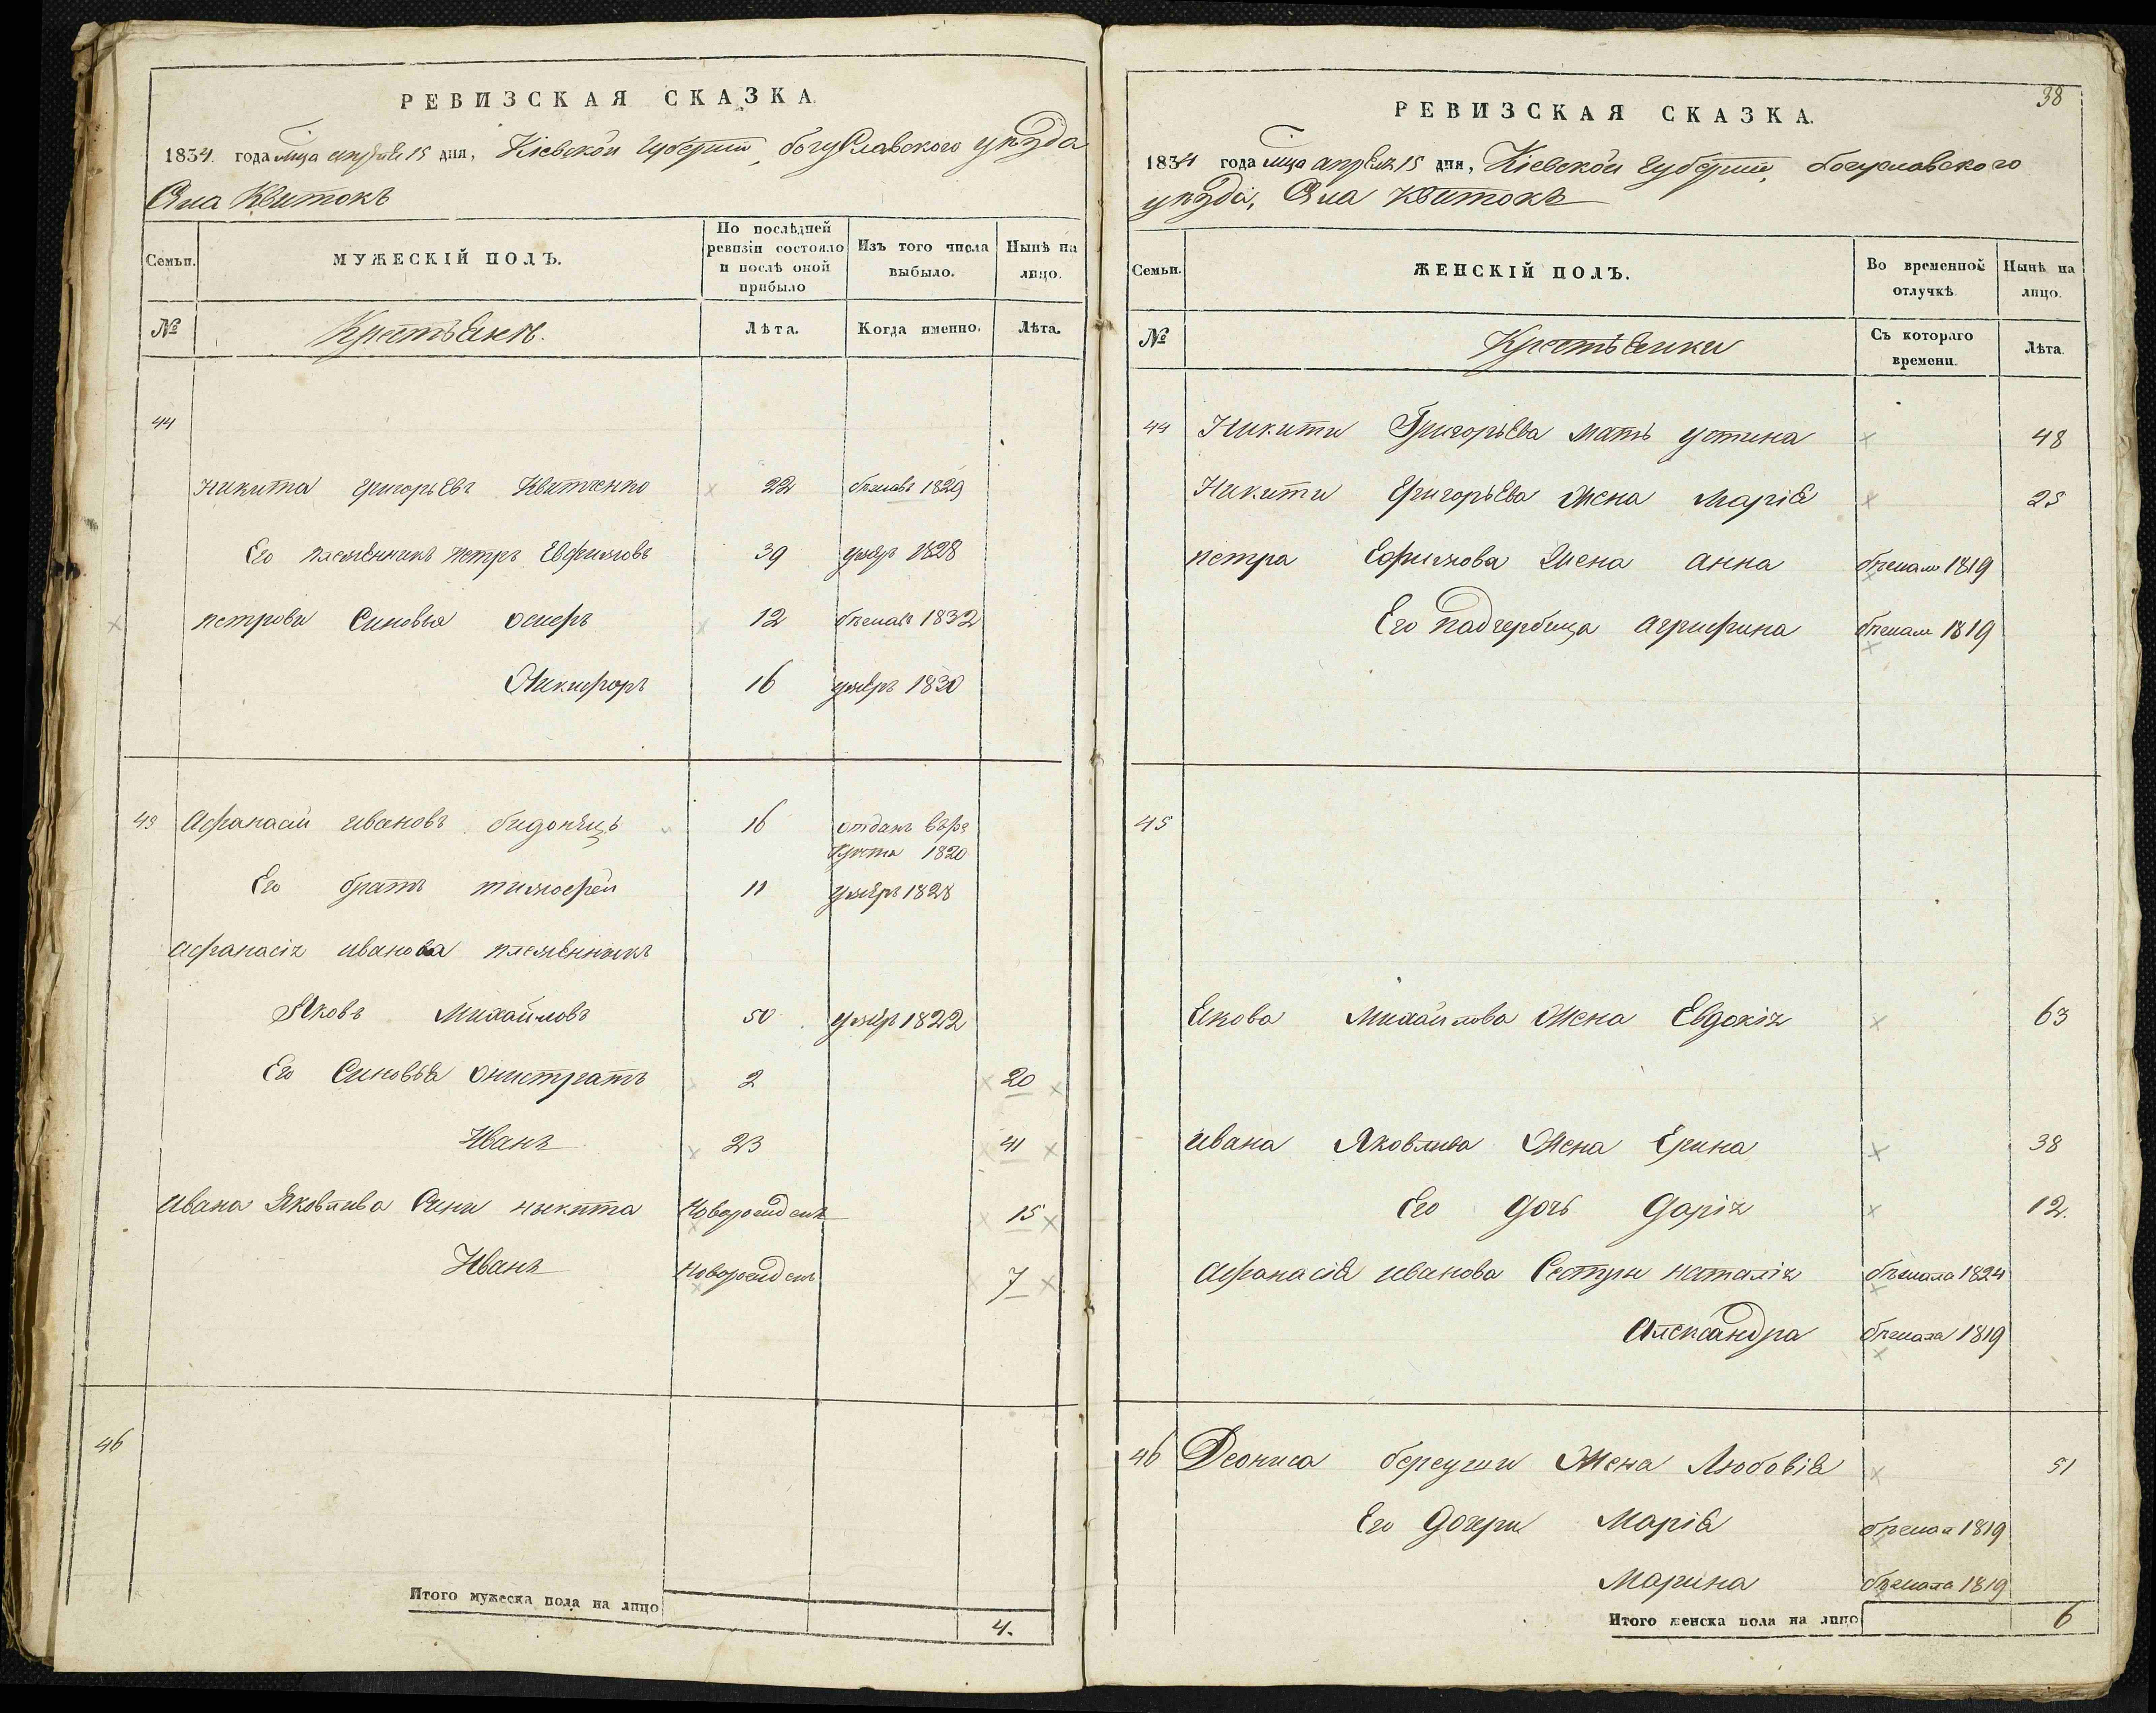 РЕВИЗСКАЯ СКАЗКА.
1834 года мца апреля 15 дня, Кіевской губерніи, богуславского уѣзда
Села Квитокъ
Семьи. МУЖЕСКІЙ ПОЛЪ. По послѣдней ревизіи состояло и послѣ оной прибыло Изъ того числа выбыло. Нынѣ на лицо.
№ Крестьяне. Лѣта. Когда именно. Лѣта.
44
никита григорьевъ Квитченко 22 бѣжавъ 1829
Его племенникъ петръ Евфимовъ 39 умеръ 1828
петрови Синовья осиеръ 12 бѣжавъ 1832
Никифоръ 16 умеръ 1830
45 Афанасий ивановъ 16 отданъ въре
круты 1820
Его братъ тимофей 11 умеръ 1828
афанасія иванова племенникъ
Яковъ Михайловъ 50 умеръ 1822
Его Синовья онистратъ 2 20
Иванъ 23 41
ивана Яковлива Сини никита Новорожденъ 15
Иванъ новорожденъ 7
46
Итого мужеска пола на лицо 4.
38
РЕВИЗСКАЯ СКАЗКА.
1834 года мца апреля 15 дня, Кіевской губерніи, богуславского
уѣзда, Села Квитокъ
Семьи. ЖЕНСКІЙ ПОЛЪ. Во временной отлучкѣ. Нынѣ на лицо.
№ Крестьянки Съ котораго времени. Лѣта.
44 Никити Григорьева мать устина 48
Никити григорьева Жена Марія 25
петра Ефимова Жена анна бѣжала 1819
Его падчербица агрифина бѣжала 1819
45
Якова Михайлова Жена Евдокія 63
ивана Яковлива Жена Ерина 38
Его дочь дарія 12.
Афанасія иванова Сестри наталія бѣжала 1824
Александра бѣжала 1819
46 Деониса Жена Любовія 51
Его дочери Марія бѣжала 1819
Марина бѣжала 1819
Итого женска пола на лицо 6